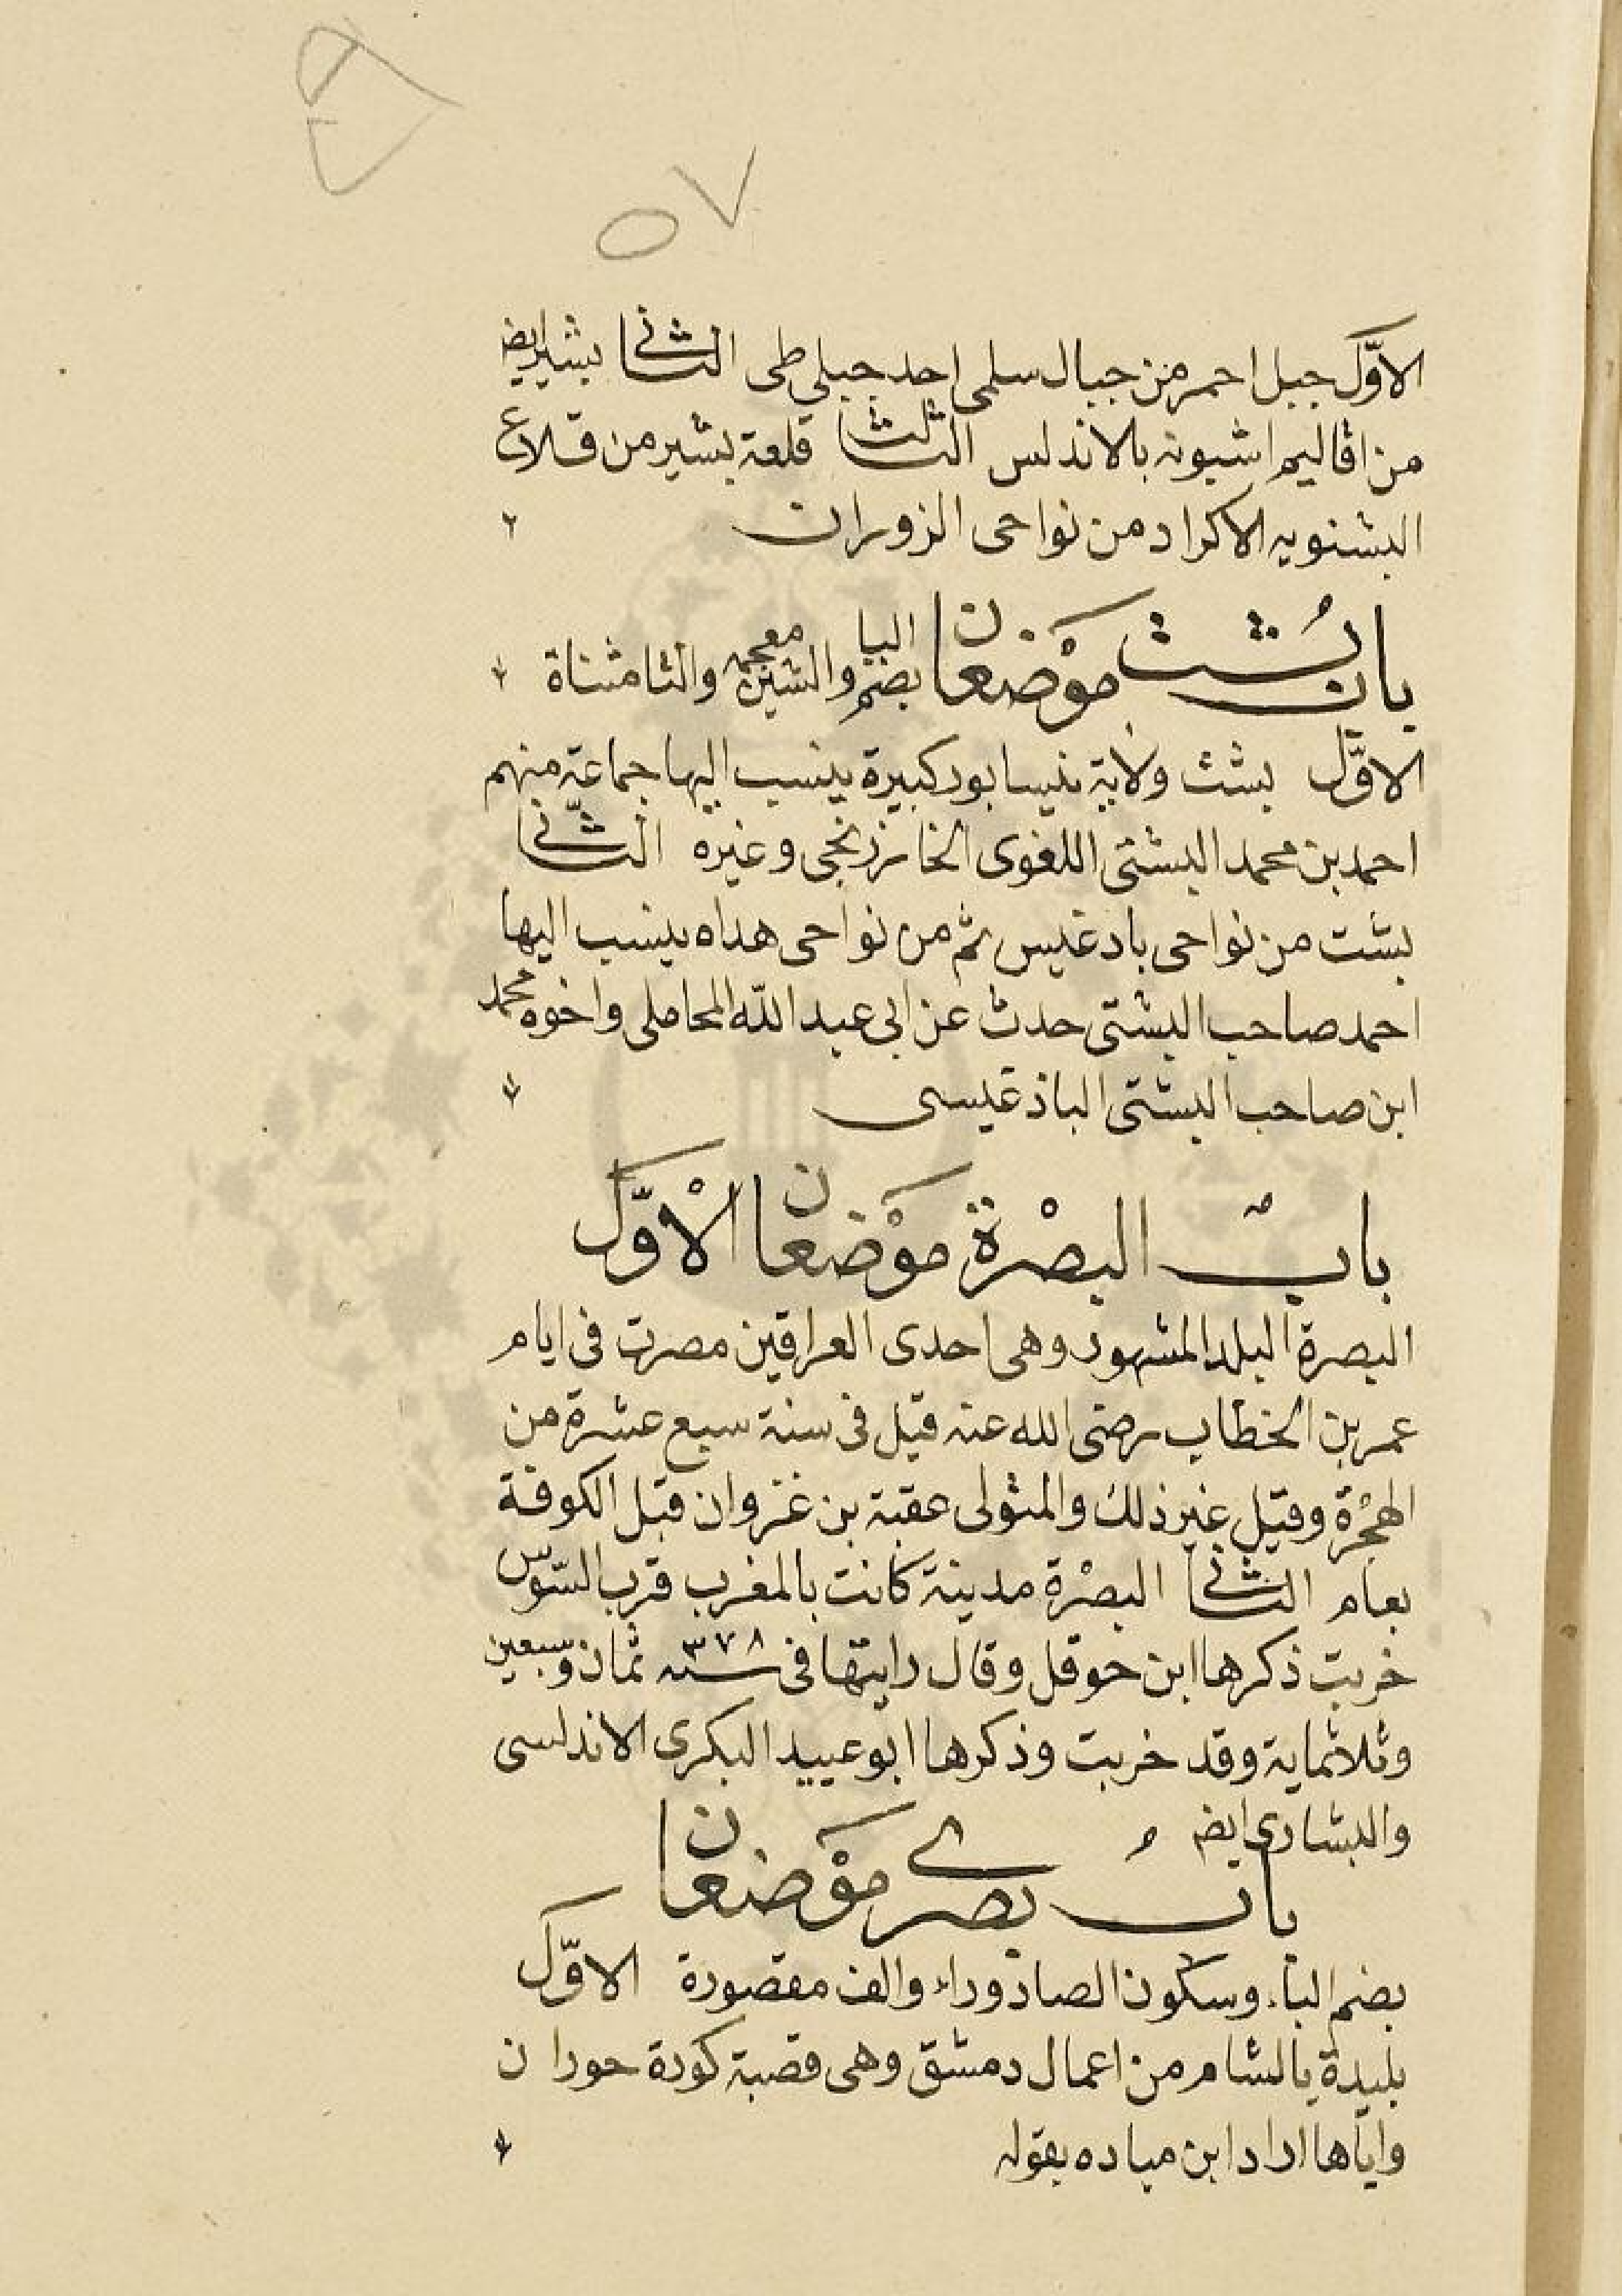 ٥٧
الاوّل جبل احمر من جبال سلمى احد جبلي طى الثانى بشير ايض
من اقاليم اشبونه بالاندلس الثالث قلعة بشير من قلاع
البشنويه الاكراد من نواحى الزوزان
باب بُشت موْضعان بضم البا والشين معجمه والتا مثناة
الاوّل بشت ولاية نيسابور كبيرة ينسب اليها جماعة منهم
احمد بن محمد البشتى اللغوى الخارزنجى وغيره الثانى
بشت من نواحى بادغيس ثم من نواحى هداه ينسب اليها
احمد صاحب البشتى حدث عن ابى عبد الله المحاملى واخوه محمد
ابن صاحب البشتى الباذغيسى
باب البصْرة موْضعان الاْوّل
البصرة البلد المشهور وهى احدى العراقين مصرت فى ايام
عمر بن الخطاب رضى الله عنه قيل فى سنة سبع عشرة من
الهجْرة وقيل غير ذلك والمتولى عقبة بن غزوان قبل الكوفة
بعام الثانى البصْرة مدينة كانت بالمغرب قرب السّوس
خربت ذكرها ابن حوقل وقال رايتها فى سنه ٣٧٨ ثمان وسبعين
وثلاثماية وقد خربت وذكرها ابو عبيد البكرى الاندلسى
والبشارى ايض
باب بُصرى موْضعان
بضم الباء وسكون الصاد وراء والف مقصورة الاوّل
بليدة بالشام من اعمال دمشق وهى قصبة كورة حوران
واياها اراد ابن مياده بقوله